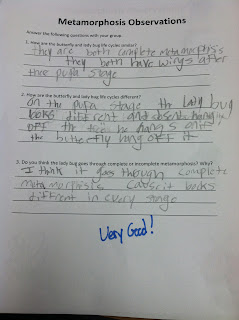 Metamorphosis Observations
Answer the following questions with your group.
1. How are the butterfly and lady bug life cycles similar?
They are both complete metamorphisis
they both have wings after
the pupa stage
2. How are the butterfly and lady bug life cycles different?
on the pupa stage the lady bug
looks different and
off the tree he hangs
the butterfly hung off it
3. Do you think the lady bug goes through complete or incomplete metamorphosis? Why?
I think it goes through complete
metamorphisis cause it looks
different in every stage
Very Good!